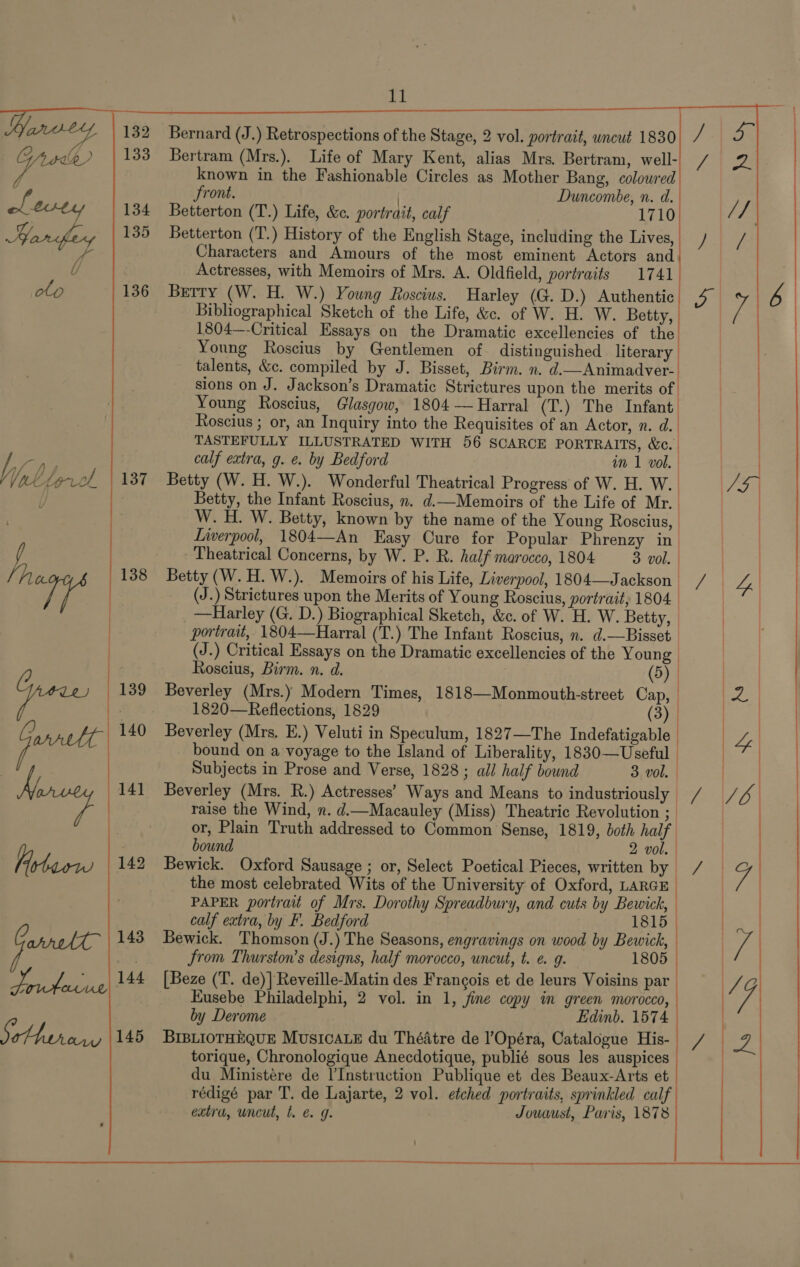 11
Harvey 132 Bernard (J.) Retrospections of the Stage, 2 vol. portrait, uncut 1830 / 5
Grose 133 Bertram (Mrs.). Life of Mary Kent, alias Mrs. Bertram, well- / 2
known in the Fashionable Circles as Mother Bang, coloured
front. Duncombe, n. d.
134 Betterton (T.) Life, &c. portrait, calf 1710 11
Harvey 135 Betterton (T.) History of the English Stage, including the Lives, / /
Characters and Amours of the most eminent Actors and
Actresses, with Memoirs of Mrs. A. Oldfield, portraits 1741
do 136 BETTY (W. H. W.) Young Roscius. Harley (G. D.) Authentic 5 7 6
Bibliographical Sketch of the Life, &c. of W. H. W. Betty,
1804—Critical Essays on the Dramatic excellencies of the
Young Roscius by Gentlemen of distinguished literary
talents, &c. compiled by J. Bisset, Birm. n. d.—Animadver-
sions on J. Jackson's Dramatic Strictures upon the merits of
Young Roscius, Glasgow, 1804—Harral (T.) The Infant
Roscius; or, an Inquiry into the Requisites of an Actor, n. d.
TASTEFULLY ILLUSTRATED WITH 56 SCARCE PORTRAITS, &c.
calf extra, g. e. by Bedford in 1 vol.
Walford 137 Betty (W. H. W.). Wonderful Theatrical Progress of W. H. W. 15
Betty, the Infant Roscius, n. d.—Memoirs of the Life of Mr.
W. H. W. Betty, known by the name of the Young Roscius,
Liverpool, 1804—An Easy Cure for Popular Phrenzy in
Theatrical Concerns, by W. P. R. half marocco, 1804 3 vol.
Maggs 138 Betty (W. H. W.). Memoirs of his Life, Liverpool, 1804—Jackson / 4
(J.) Strictures upon the Merits of Young Roscius, portrait, 1804
—Harley (G. D.) Biographical Sketch, &c. of W. H. W. Betty,
portrait, 1804—Harral (T.) The Infant Roscius, n. d.—Bisset
(J.) Critical Essays on the Dramatic excellencies of the Young
Roscius, Birm. n. d. (5)
Grose 139 Beverley (Mrs.) Modern Times, 1818—Monmouth-street Cap, 2
1820—Reflections, 1829 (3)
Garrett 140 Beverley (Mrs. E.) Veluti in Speculum, 1827—The Indefatigable 4
bound on a voyage to the Island of Liberality, 1830—Useful
Subjects in Prose and Verse, 1828; all half bound 3 vol.
Harvey 141 Beverley (Mrs. R.) Actresses' Ways and Means to industriously / 16
raise the Wind, n. d.—Macauley (Miss) Theatric Revolution;
or, Plain Truth addressed to Common Sense, 1819, both half
bound 2 vol.
142 Bewick. Oxford Sausage; or, Select Poetical Pieces, written by / 9
the most celebrated Wits of the University of Oxford, LARGE
PAPER portrait of Mrs. Dorothy Spreadbury, and cuts by Bewick,
calf extra, by F. Bedford 1815
Garrett 143 Bewick. Thomson (J.) The Seasons, engravings on wood by Bewick, 7
from Thurston's designs, half morocco, uncut, t. e. g. 1805
Fontaine 144 [Beze (T. de)] Reveille-Matin des François et de leurs Voisins par 19
Eusebe Philadelphi, 2 vol. in 1, fine copy in green morocco,
by Derome Edinb. 1574
Sotheran 145 BIBLIOTHÈQUE MUSICALE du Théâtre de l'Opéra, Catalogue His- / 2
torique, Chronologique Anecdotique, publié sous les auspices
du Ministére de l'Instruction Publique et des Beaux-Arts et
rédigé par T. de Lajarte, 2 vol. etched portraits, sprinkled calf
extra, uncut, t. e. g. Jouaust, Paris, 1878